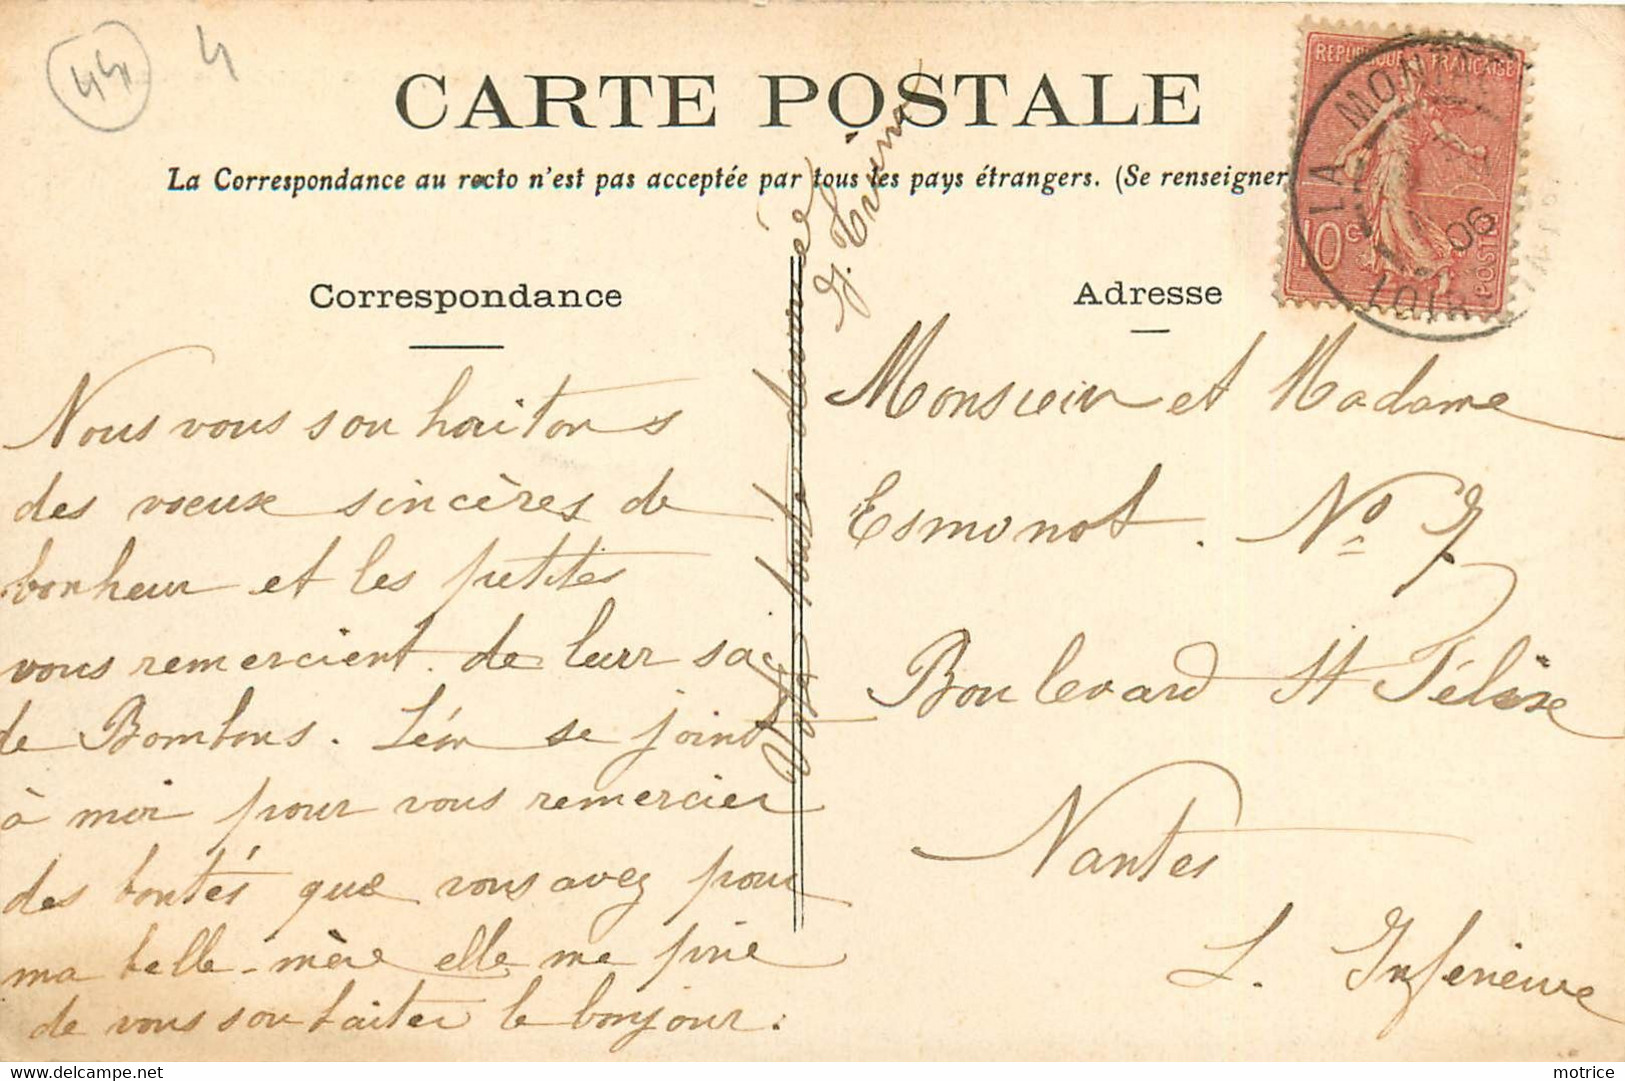 44 4
CARTE POSTALE
La Correspondance au recto n'est pas acceptée par tous les pays étrangers. (Se renseigner
REPUBLIQUE FRANÇAISE
10 c POSTES
LA MONTAGNE
06
Correspondance
Adresse
Nous vous souhaitons
des vœux sincères de
bonheur et les petites
vous remercient de leurr sac
de Bombons. Léon se joint
à moi pour vous remercier
des bontés que vous avez pour
ma belle-mère elle me prie
de vous souhaiter le bonjour.
Votre toute dévouée
Monsieur et Madame
Esmonot. No 7
Boulevard St Félixe
Nantes
L. Inferieure
motrice